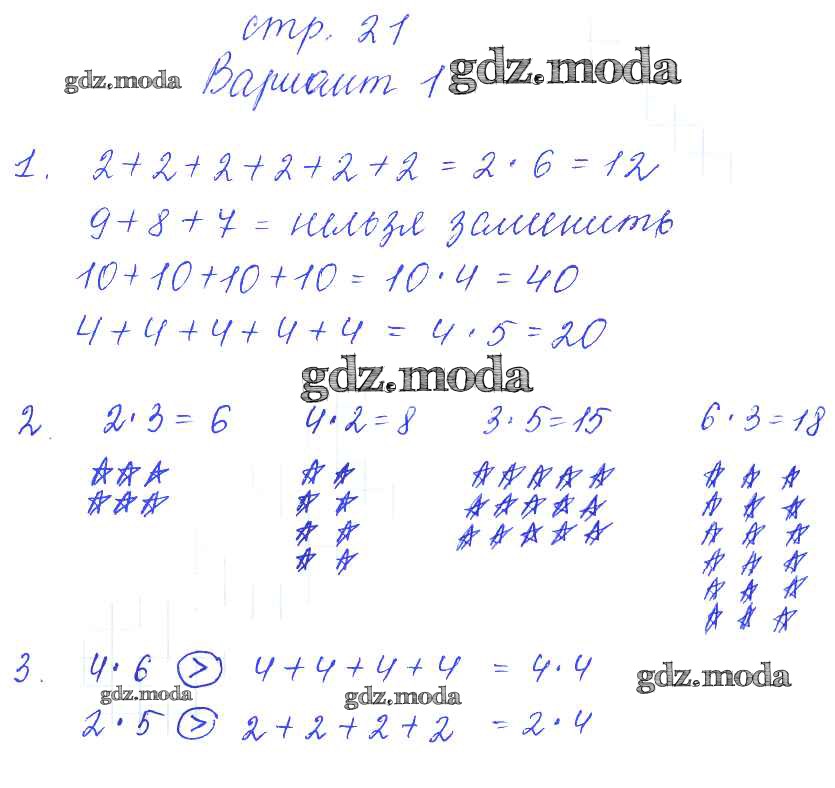 стр. 21
gdz.moda Вариант 1 gdz.moda
1. 2+2+2+2+2+2 = 2·6 = 12
9+8+7 = нельзя заменить
10+10+10+10 = 10·4 = 40
4+4+4+4+4 = 4·5 = 20
gdz.moda
2. 2·3 = 6 4·2 = 8 3·5 = 15 6·3 = 18
3. 4·6 > 4+4+4+4 = 4·4 gdz.moda
gdz.moda gdz.moda
2·5 > 2+2+2+2 = 2·4